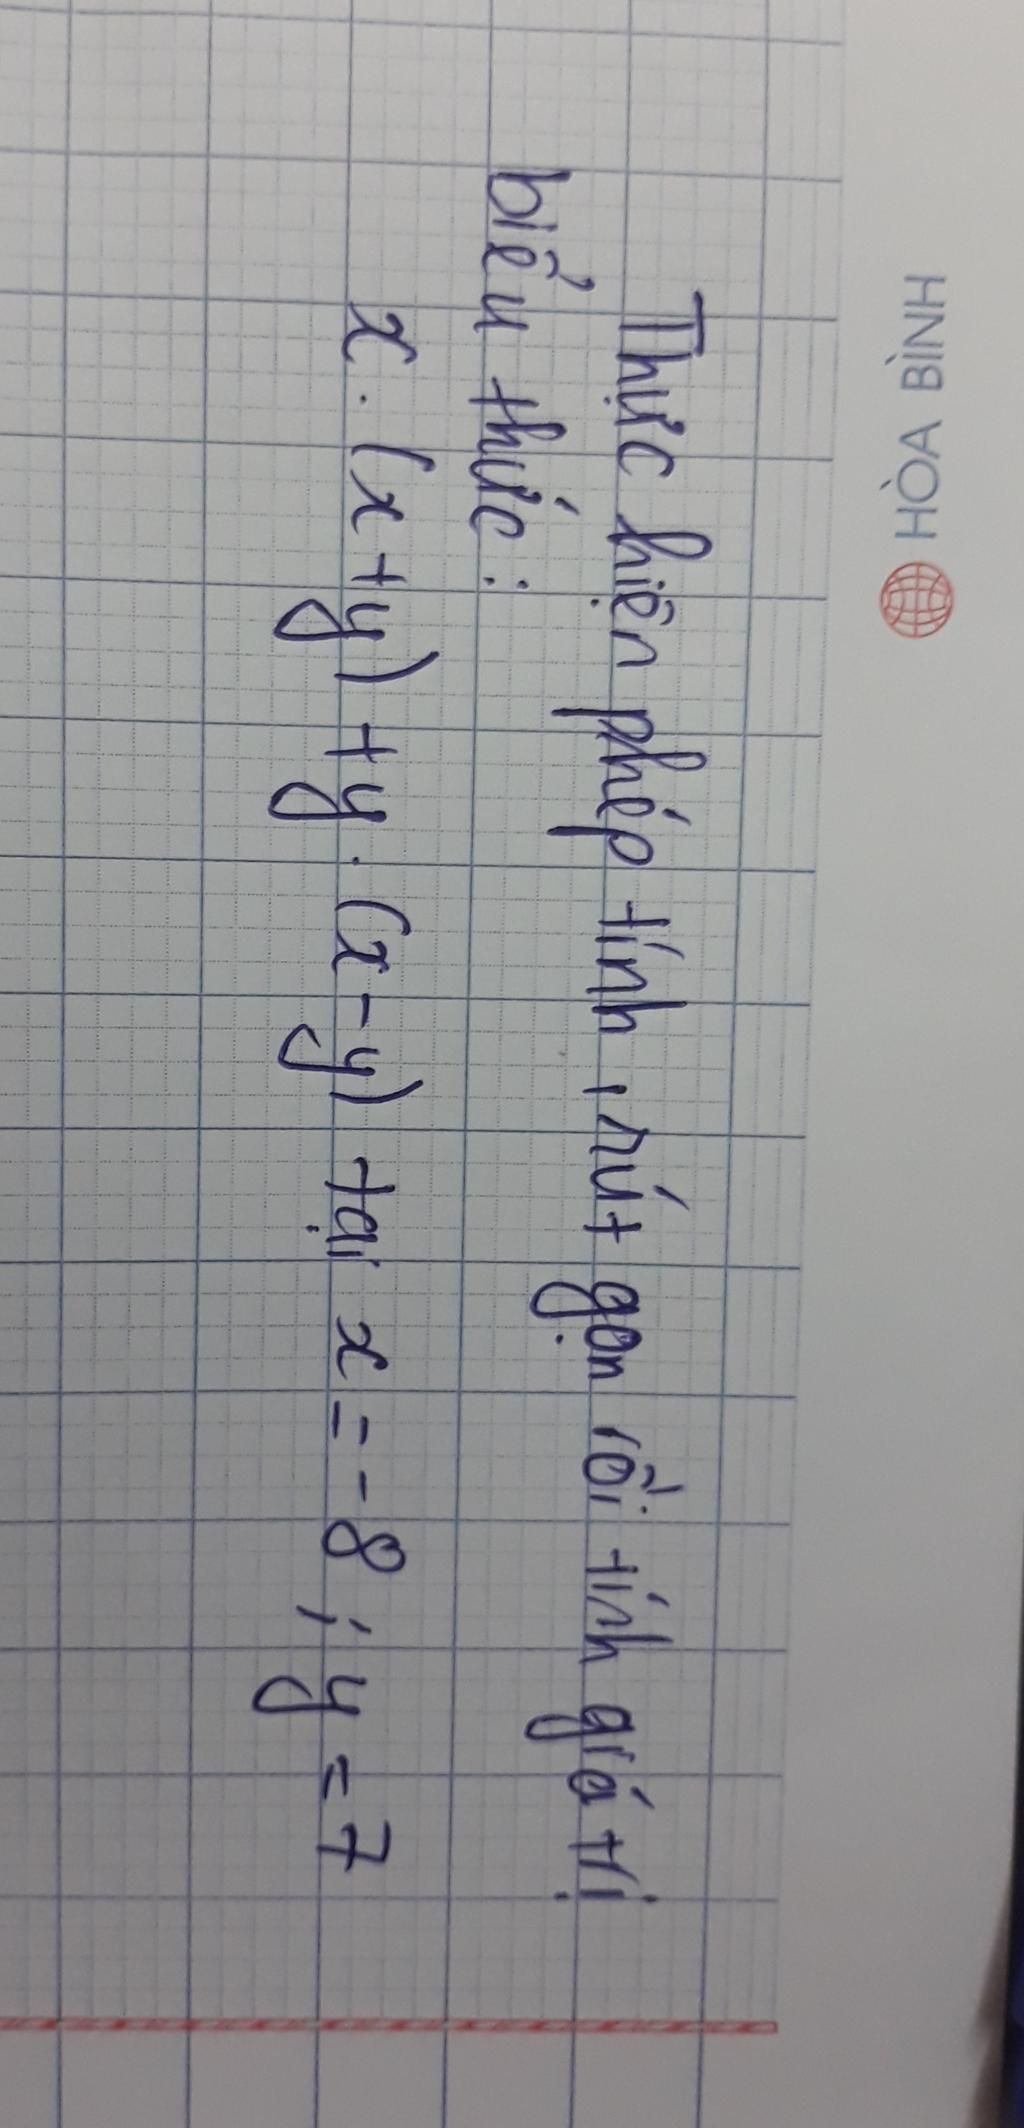 HÒA BÌNH
Thực hiện phép tính, rút gọn rồi tính giá trị
biểu thức:
x.(x+y)+y.(x-y) tại x=-8; y=7